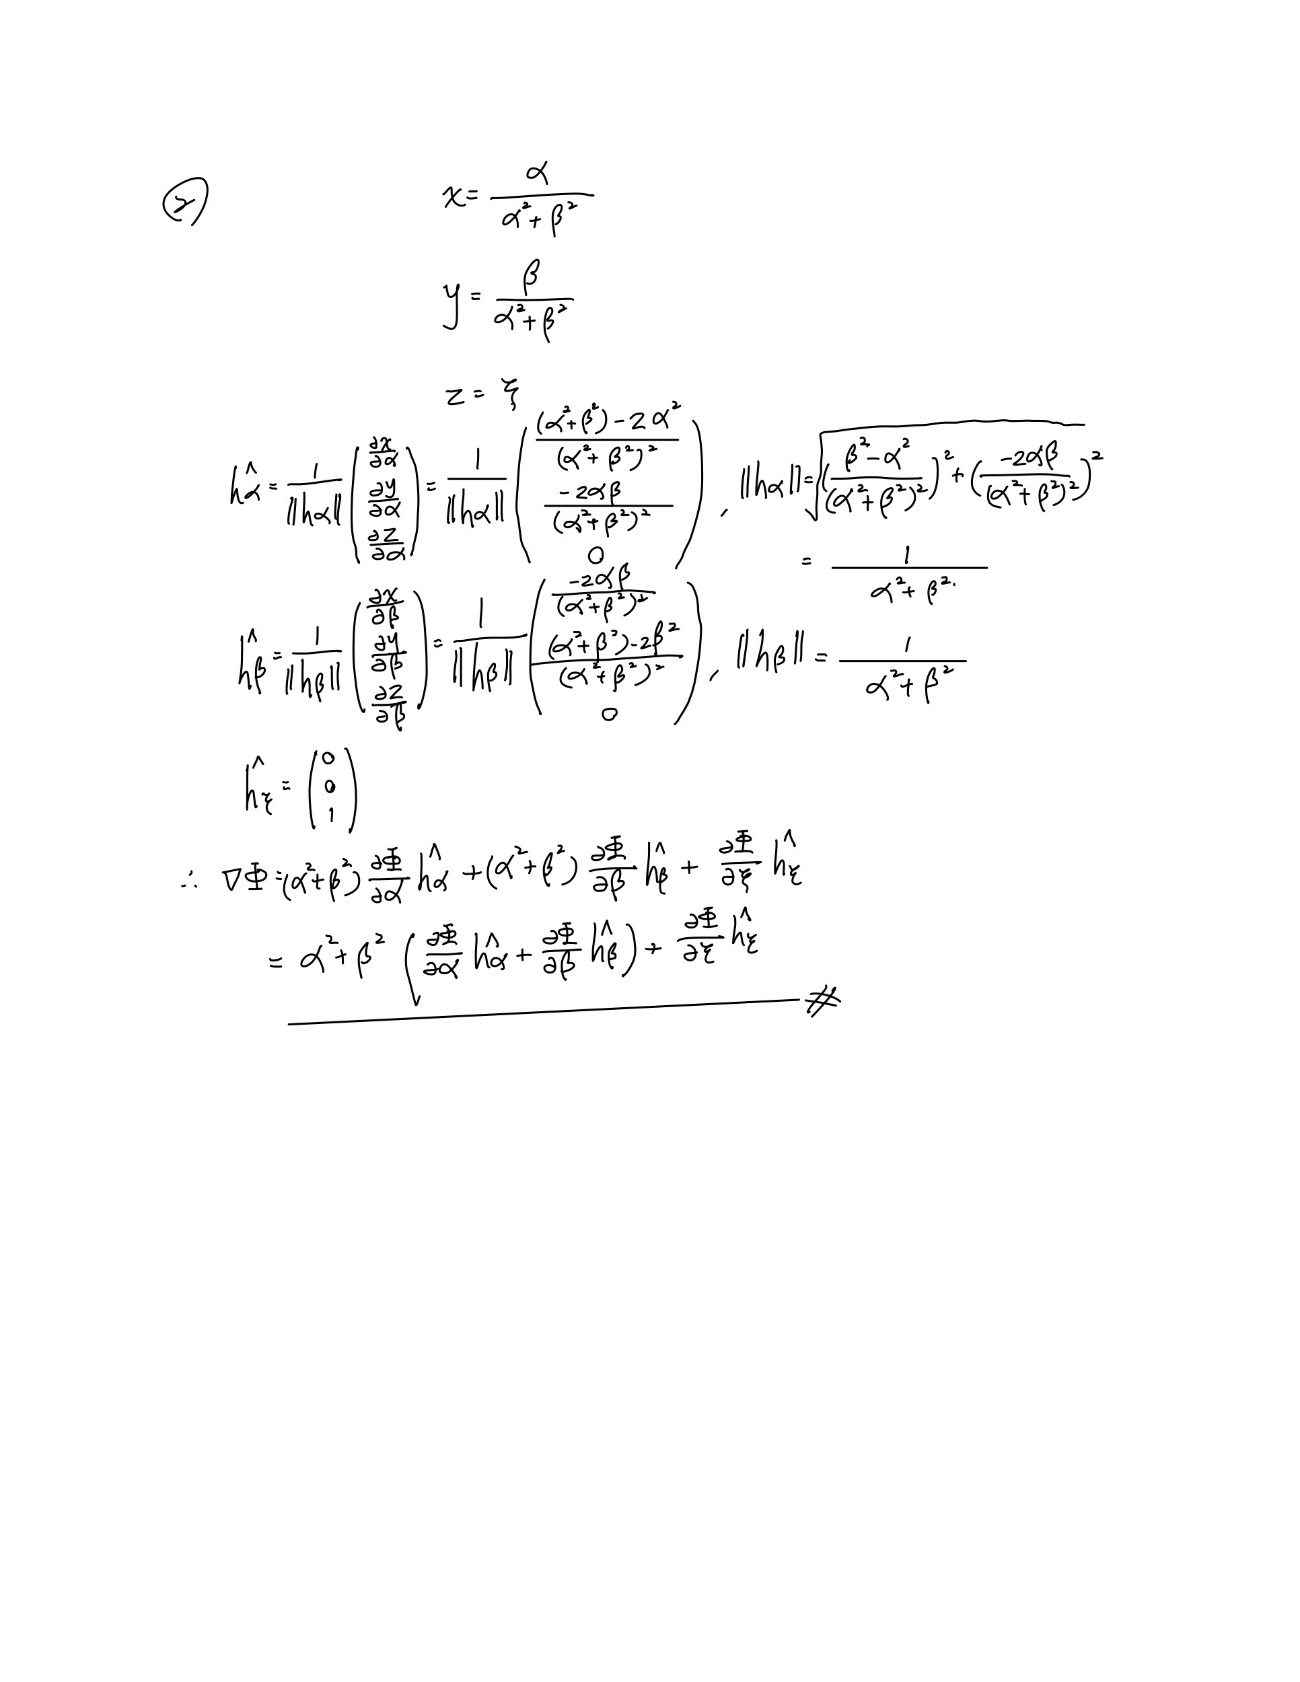 ② x = \frac{α}{α²+β²}
y = \frac{β}{α²+β²}
z = ξ
\hat{hα} = \frac{1}{||hα||} \begin{pmatrix} \frac{∂x}{∂α} \\ \frac{∂y}{∂α} \\ \frac{∂z}{∂α} \end{pmatrix} = \frac{1}{||hα||} \begin{pmatrix} \frac{(α²+β²)-2α²}{(α²+β²)²} \\ \frac{-2αβ}{(α²+β²)²} \\ 0 \end{pmatrix}, ||hα|| = \sqrt{(\frac{β²-α²}{(α²+β²)²})² + (\frac{-2αβ}{(α²+β²)²})²}
= \frac{1}{α²+β²}.
\hat{hβ} = \frac{1}{||hβ||} \begin{pmatrix} \frac{∂x}{∂β} \\ \frac{∂y}{∂β} \\ \frac{∂z}{∂β} \end{pmatrix} = \frac{1}{||hβ||} \begin{pmatrix} \frac{-2αβ}{(α²+β²)²} \\ \frac{(α²+β²)-2β²}{(α²+β²)²} \\ 0 \end{pmatrix}, ||hβ|| = \frac{1}{α²+β²}
\hat{hξ} = \begin{pmatrix} 0 \\ 0 \\ 1 \end{pmatrix}
∴ ∇Φ = (α²+β²) \frac{∂Φ}{∂α} \hat{hα} + (α²+β²) \frac{∂Φ}{∂β} \hat{hβ} + \frac{∂Φ}{∂ξ} \hat{hξ}
= α²+β² (\frac{∂Φ}{∂α} \hat{hα} + \frac{∂Φ}{∂β} \hat{hβ}) + \frac{∂Φ}{∂ξ} \hat{hξ}
#